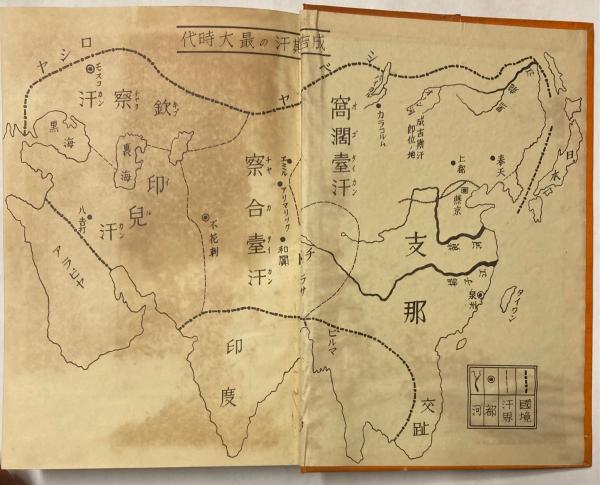 成吉斯汗の最大時代
シベリヤ
ロシヤ
モスコ
欽察汗
キプチャクカン
黒海
裏海
伊兒汗
イルカン
八吉打
アラビヤ
不花剌
察合臺汗
チャカタイカン
エミル
アリマリック
和闐
窩濶臺汗
オゴタイカン
カラコルム
成吉斯汗即位ノ地
上都
奉天
燕京
日本
黄河
揚子江
支那
泉州
タイワン
チベット
ラサ
ビルマ
印度
交趾
國境
汗界
都
河